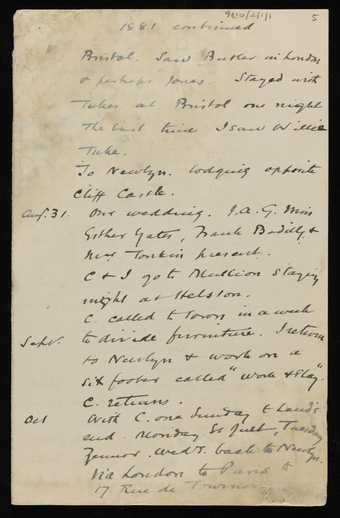 9810/2/1/1
5
1881 continued
Bristol. Saw Butler in London
& perhaps Jones. Stayed with
Tukes at Bristol one night
The last time I saw Willie
Tuke.
To Newlyn. lodging opposite
Cliff Castle.
Aug. 31. Our wedding. J.A.G. Miss
Esther Gates, Frank Bodilly &
Tonkin present.
C & I go to Mullion staying
night at Helston.
C called to town in a week
Sept. to divide furniture. I return
to Newlyn & work on a
six footer called "Work & Play".
C. returns.
Oct With C. one Sunday to Land's
end. Monday St Just, Tuesday
Zennor. Wed'y. back to Newlyn.
Via London to Paris to
17 Rue de Tournon